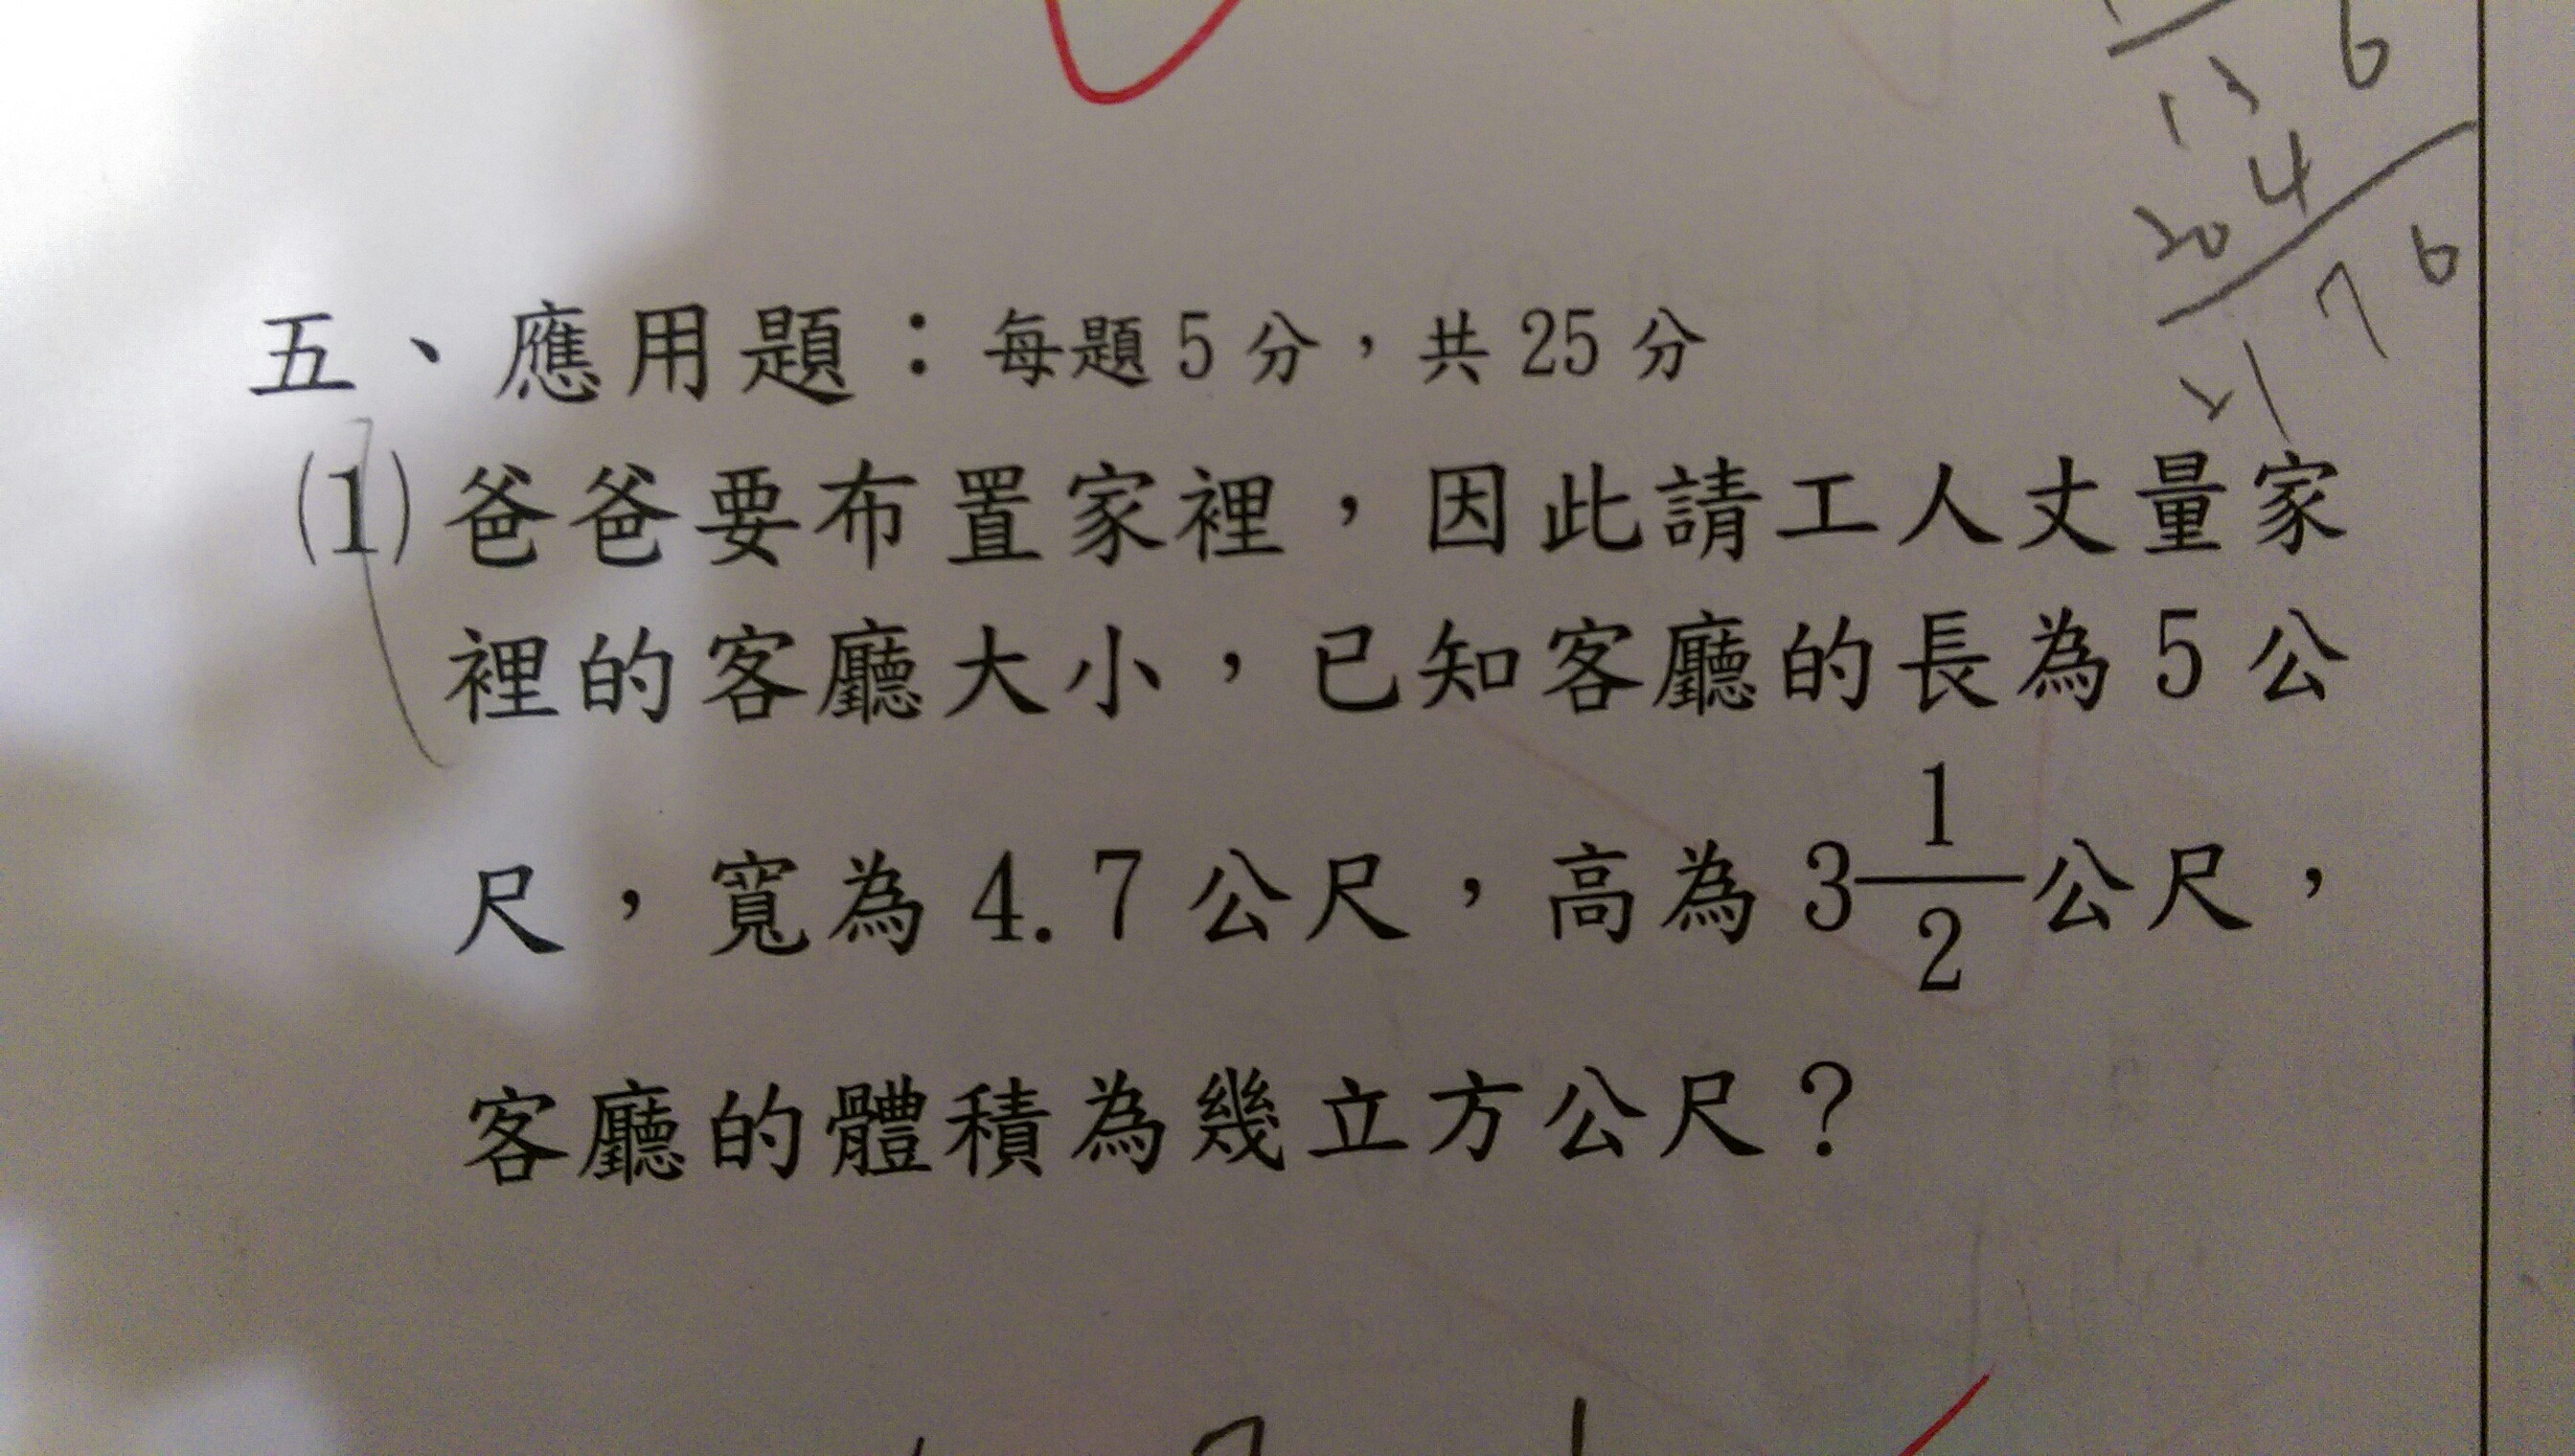 6
13
4
20
6
7
21
五、應用題：每題5分，共25分
(1)爸爸要布置家裡，因此請工人丈量家
裡的客廳大小，已知客廳的長為5公
尺，寬為4.7公尺，高為3 1/2公尺，
客廳的體積為幾立方公尺？